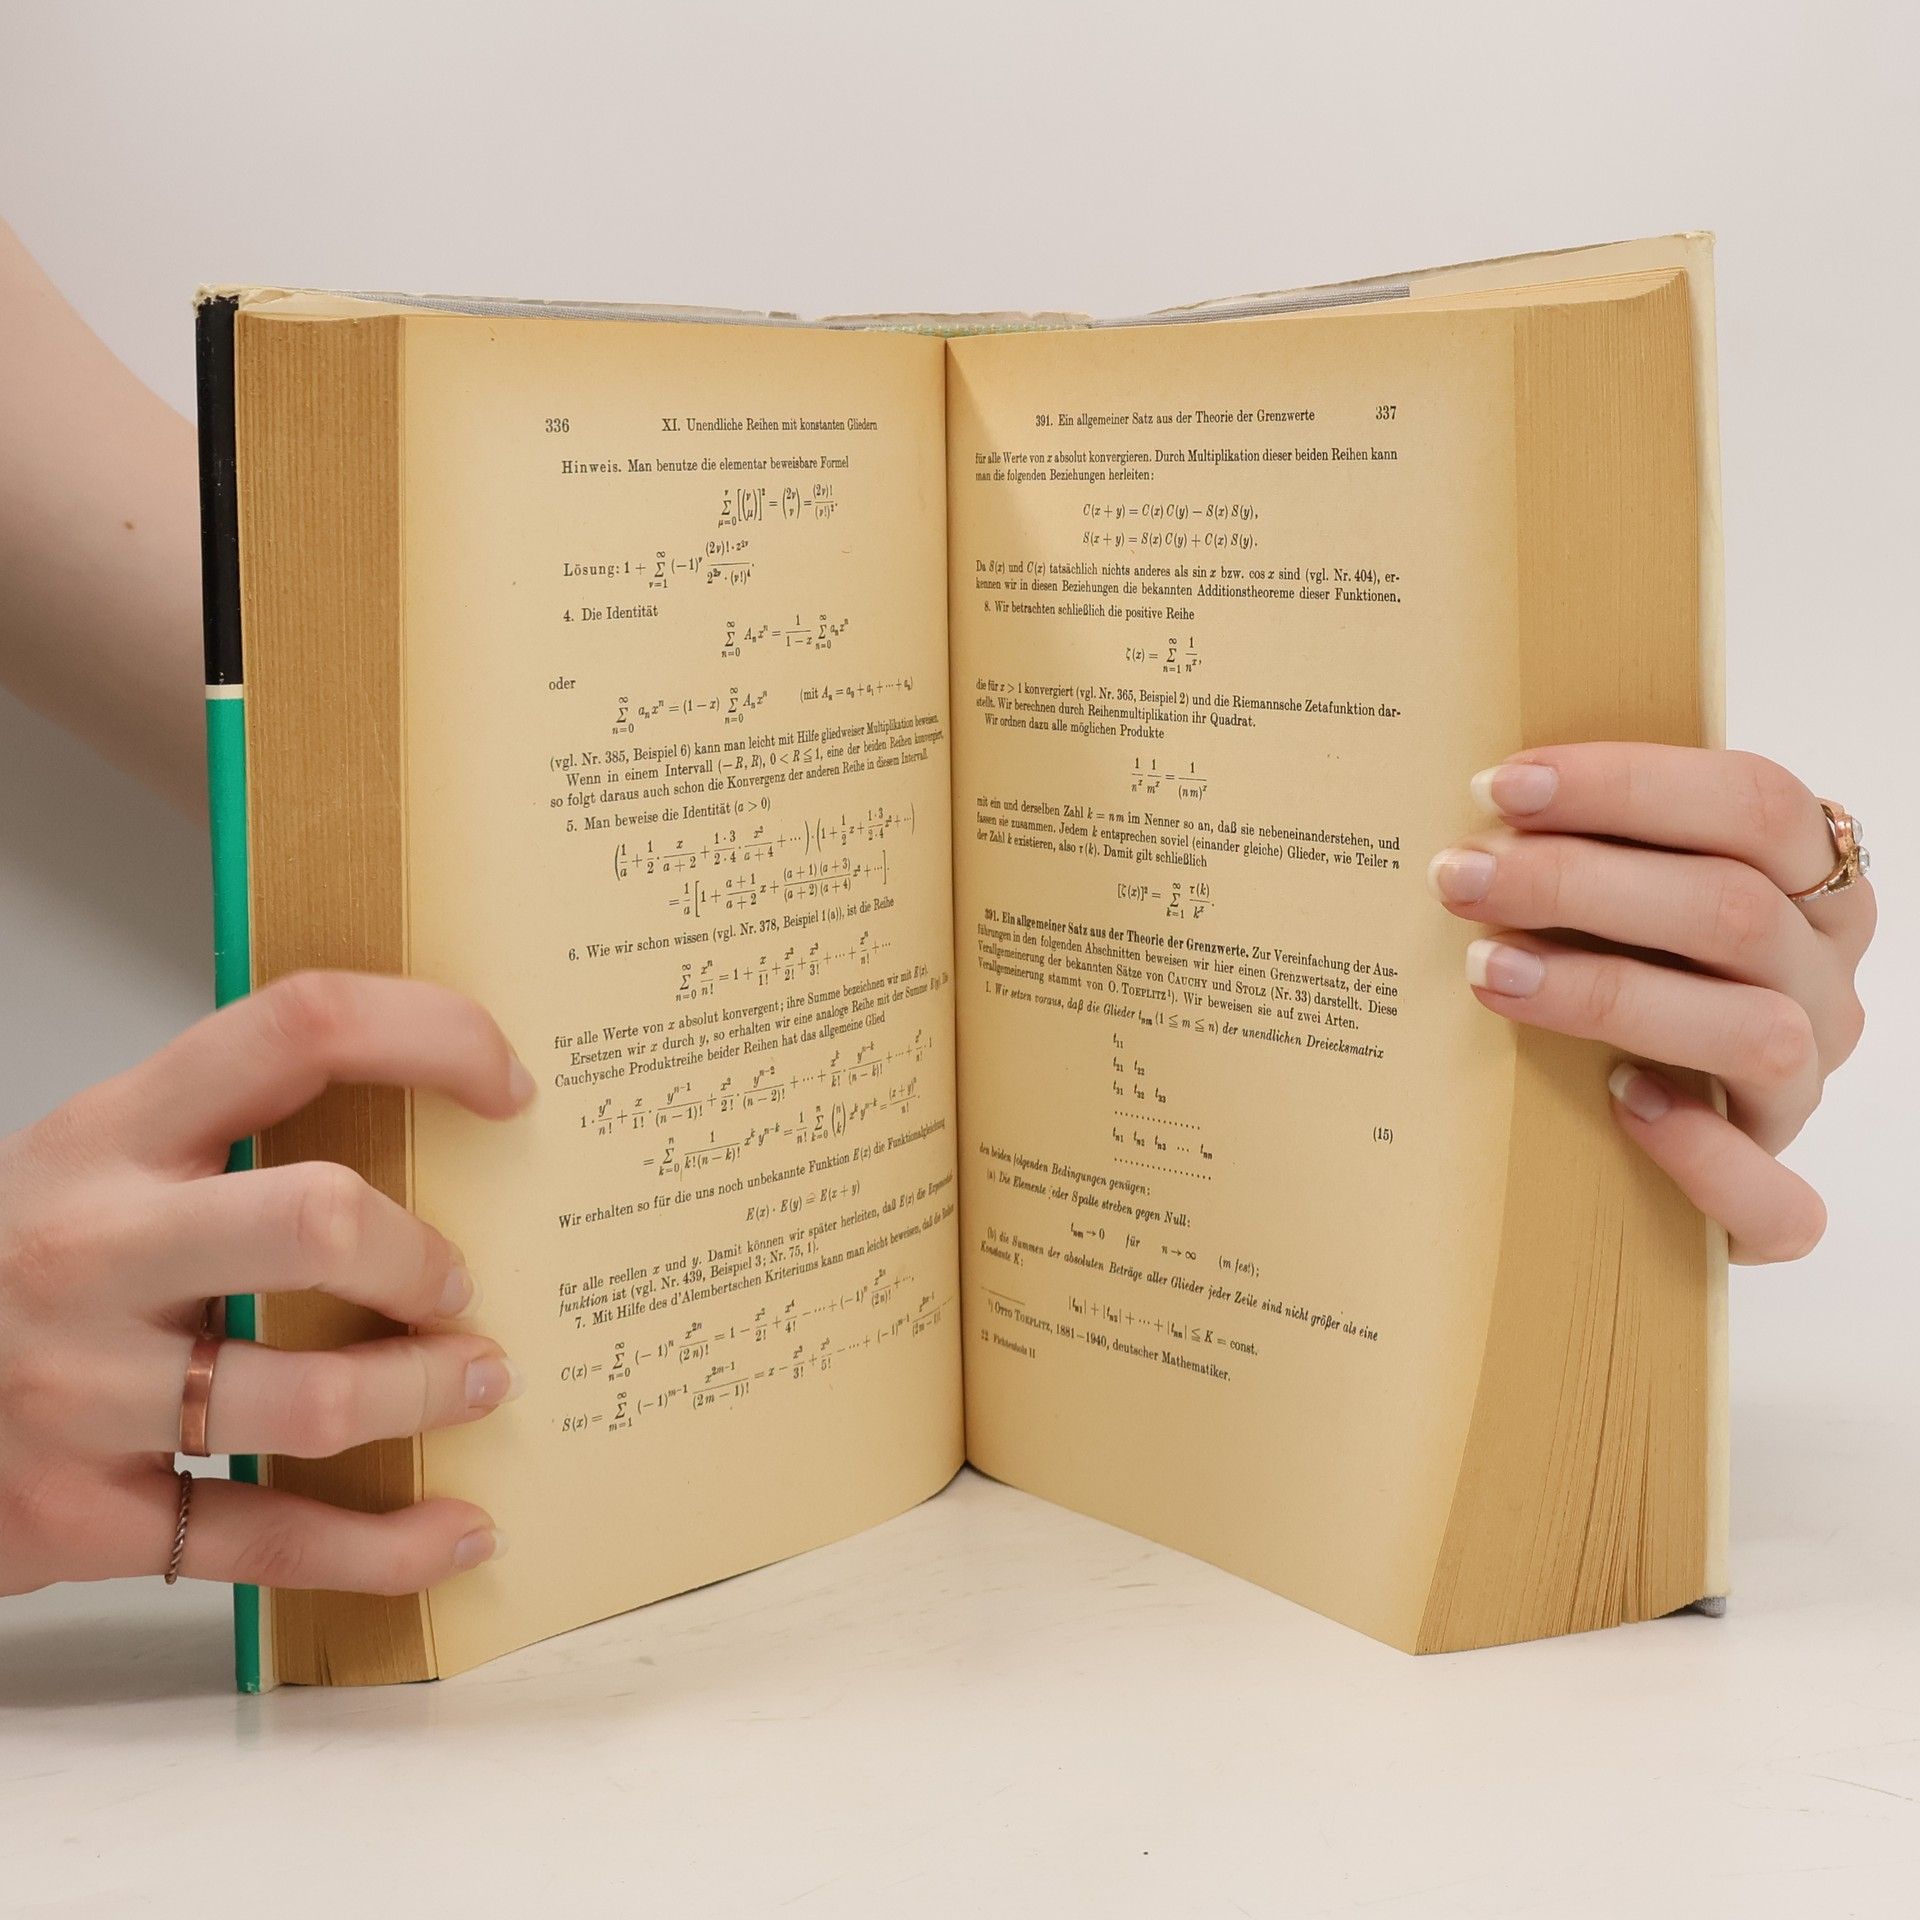 336 XI. Unendliche Reihen mit konstanten Gliedern
Hinweis. Man benutze die elementar beweisbare Formel
∑_{μ=0}^{ν} [(ν über μ)]² = (2ν über ν) = (2ν)!/(ν!)².
Lösung: 1 + ∑_{ν=1}^{∞} (−1)^ν (2ν)! · z^{2ν} / (2^{2ν} · (ν!)⁴).
4. Die Identität
∑_{n=0}^{∞} Aₙxⁿ = 1/(1 − x) ∑_{n=0}^{∞} aₙxⁿ
oder
∑_{n=0}^{∞} aₙxⁿ = (1 − x) ∑_{n=0}^{∞} Aₙxⁿ (mit Aₙ = a₀ + a₁ + ··· + aₙ)
(vgl. Nr. 385, Beispiel 6) kann man leicht mit Hilfe gliedweiser Multiplikation beweisen.
Wenn in einem Intervall (−R, R), 0 < R ≦ 1, eine der beiden Reihen konvergiert,
so folgt daraus auch schon die Konvergenz der anderen Reihe in diesem Intervall.
5. Man beweise die Identität (a > 0)
(1/a + 1/2 · x/(a + 2) + (1·3)/(2·4) · x²/(a + 4) + ···) · (1 + 1/2 x + (1·3)/(2·4) x² + ···)
= 1/a [1 + (a + 1)/(a + 2) x + (a + 1)(a + 3)/((a + 2)(a + 4)) x² + ···].
6. Wie wir schon wissen (vgl. Nr. 378, Beispiel 1(a)), ist die Reihe
∑_{n=0}^{∞} xⁿ/n! = 1 + x/1! + x²/2! + x³/3! + ··· + xⁿ/n! + ···
für alle Werte von x absolut konvergent; ihre Summe bezeichnen wir mit E(x).
Ersetzen wir x durch y, so erhalten wir eine analoge Reihe mit der Summe E(y). Die
Cauchysche Produktreihe beider Reihen hat das allgemeine Glied
1 · yⁿ/n! + x/1! · yⁿ⁻¹/(n − 1)! + x²/2! · yⁿ⁻²/(n − 2)! + ··· + xᵏ/k! · yⁿ⁻ᵏ/(n − k)! + ··· + xⁿ/n! · 1
= ∑_{k=0}^{n} 1/(k!(n − k)!) xᵏ yⁿ⁻ᵏ = 1/n! ∑_{k=0}^{n} (n über k) xᵏ yⁿ⁻ᵏ = (x + y)ⁿ/n!.
Wir erhalten so für die uns noch unbekannte Funktion E(x) die Funktionalgleichung
E(x) · E(y) = E(x + y)
für alle reellen x und y. Damit können wir später herleiten, daß E(x) die Exponential-
funktion ist (vgl. Nr. 439, Beispiel 3; Nr. 75, 1).
7. Mit Hilfe des d'Alembertschen Kriteriums kann man leicht beweisen, daß die Reihen
C(x) = ∑_{n=0}^{∞} (−1)ⁿ x²ⁿ/(2n)! = 1 − x²/2! + x⁴/4! − ··· + (−1)ⁿ x²ⁿ/(2n)! + ···,
S(x) = ∑_{m=1}^{∞} (−1)^{m−1} x^{2m−1}/(2m − 1)! = x − x³/3! + x⁵/5! − ··· + (−1)^{m−1} x^{2m−1}/(2m − 1)!
391. Ein allgemeiner Satz aus der Theorie der Grenzwerte 337
für alle Werte von x absolut konvergieren. Durch Multiplikation dieser beiden Reihen kann
man die folgenden Beziehungen herleiten:
C(x + y) = C(x) C(y) − S(x) S(y),
S(x + y) = S(x) C(y) + C(x) S(y).
Da S(x) und C(x) tatsächlich nichts anderes als sin x bzw. cos x sind (vgl. Nr. 404), er-
kennen wir in diesen Beziehungen die bekannten Additionstheoreme dieser Funktionen.
8. Wir betrachten schließlich die positive Reihe
ζ(x) = ∑_{n=1}^{∞} 1/nˣ,
die für x > 1 konvergiert (vgl. Nr. 365, Beispiel 2) und die Riemannsche Zetafunktion dar-
stellt. Wir berechnen durch Reihenmultiplikation ihr Quadrat.
Wir ordnen dazu alle möglichen Produkte
1/nˣ 1/mˣ = 1/(nm)ˣ
mit ein und derselben Zahl k = nm im Nenner so an, daß sie nebeneinanderstehen, und
fassen sie zusammen. Jedem k entsprechen soviel (einander gleiche) Glieder, wie Teiler n
der Zahl k existieren, also τ(k). Damit gilt schließlich
[ζ(x)]² = ∑_{k=1}^{∞} τ(k)/kˣ.
391. Ein allgemeiner Satz aus der Theorie der Grenzwerte. Zur Vereinfachung der Aus-
führungen in den folgenden Abschnitten beweisen wir hier einen Grenzwertsatz, der eine
Verallgemeinerung der bekannten Sätze von CAUCHY und STOLZ (Nr. 33) darstellt. Diese
Verallgemeinerung stammt von O. TOEPLITZ¹). Wir beweisen sie auf zwei Arten.
1. Wir setzen voraus, daß die Glieder tₙₘ (1 ≦ m ≦ n) der unendlichen Dreiecksmatrix
t₁₁
t₂₁ t₂₂
t₃₁ t₃₂ t₃₃
..............
tₙ₁ tₙ₂ tₙ₃ ··· tₙₙ (15)
................
den beiden folgenden Bedingungen genügen:
(a) Die Elemente jeder Spalte streben gegen Null:
tₙₘ → 0 für n → ∞ (m fest);
(b) die Summen der absoluten Beträge aller Glieder jeder Zeile sind nicht größer als eine
Konstante K:
|tₙ₁| + |tₙ₂| + ··· + |tₙₙ| ≦ K = const.
¹) OTTO TOEPLITZ, 1881–1940, deutscher Mathematiker.
22 Fichtenholz II